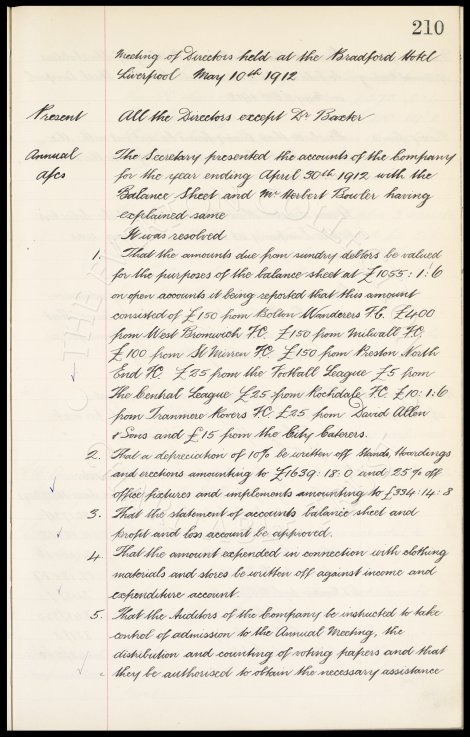 210
Meeting of Directors held at the Bradford Hotel
Liverpool May 10th 1912
Present All the Directors except Dr Baxter
Annual The Secretary presented the accounts of the Company
a/cs for the year ending April 30th 1912 with the
Balance Sheet and Mr Herbert Bowler having
explained same
It was resolved
1. That the amounts due from sundry debtors be valued
for the purposes of the balance sheet at £1055:1:6
on open accounts it being reported that this amount
consisted of £150 from Bolton Wanderers F.C. £400
from West Bromwich F.C. £150 from Millwall F.C.
£100 from St Mirren F.C. £150 from Preston North
End F.C. £25 from the Football League £5 from
The Central League £25 from Rochdale F.C. £10:1:6
from Tranmere Rovers F.C. £25 from David Allen
& Sons and £15 from the City Caterers.
2. That a depreciation of 10% be written off Stands, Hoardings
and erections amounting to £1639:18:0 and 25% off
office fixtures and implements amounting to £334:14:8
3. That the statement of accounts balance sheet and
profit and loss account be approved.
4. That the amount expended in connection with clothing
materials and stores be written off against income and
expenditure account.
5. That the Auditors of the Company be instructed to take
control of admission to the Annual Meeting, the
distribution and counting of voting papers and that
they be authorised to obtain the necessary assistance